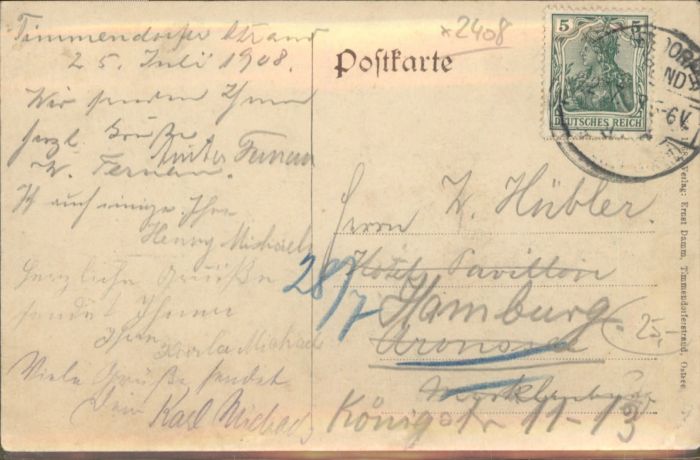 Timmendorfer Strand
25. Juli 1908.
Wir senden Ihnen
herzl. Grüße
W. Ternau.
Ternau
auch einige Ihre
Henny Michaels
Herzliche Grüße
sendet Ihnen
Ihre
Karla Michaels
Viele Grüße sendet
Dein Karl Michaels
*2408
Postkarte
5 5
DEUTSCHES REICH
Herrn W. Hübler.
Hotel Pavillon
28/7
Hamburg.
Arendsee
Mecklenburg
Königstr 11-13
25,-
Verlag: Ernst Damm, Timmendorferstrand, Ostsee.